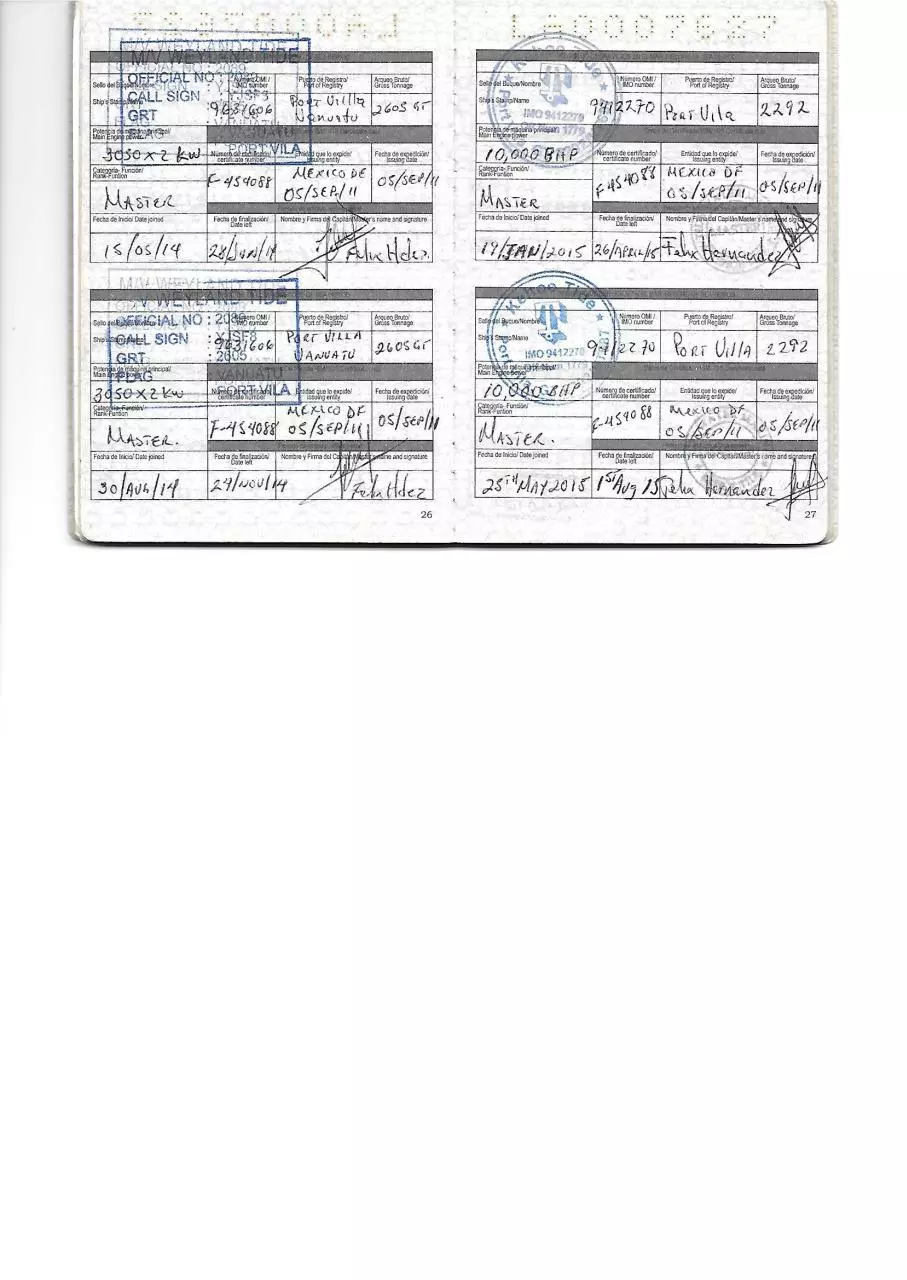 M/V WEYLAND TIDE
OFFICIAL NO :
CALL SIGN
GRT
PORT VILA
Sello del Buque/Nombre
Ship's Stamp/Name
Número OMI/
IMO number
9631606
Puerto de Registro/
Port of Registry
Port Villa
Vanuatu
Arqueo Bruto/
Gross Tonnage
2605 GT
Potencia de máquina principal/
Main Engine power
3050 x 2 KW
Número de certificado/
certificate number
F-454088
Entidad que lo expide/
Issuing entity
MEXICO DF
05/SEP/11
Fecha de expedición/
Issuing date
05/SEP/11
Categoría- Función/
Rank-Funtion
MASTER
Fecha de Inicio/ Date joined
15/05/14
Fecha de finalización/
Date left
28/JUN/14
Nombre y Firma del Capitán/Master's name and signature
Felix Hdez.
M/V WEYLAND TIDE
OFFICIAL NO : 2089
CALL SIGN : YJSF8
GRT : 2605
FLAG : VANUATU
PORT VILA
Número OMI/
IMO number
9631606
Puerto de Registro/
Port of Registry
PORT VILLA
VANUATU
Arqueo Bruto/
Gross Tonnage
2605 GT
Potencia de máquina principal/
Main Engine power
3050 x 2 KW
certificate number
F-454088
Entidad que lo expide/
Issuing entity
MEXICO DF
05/SEP/11
Fecha de expedición/
Issuing date
05/SEP/11
Categoría- Función/
Rank-Funtion
MASTER.
Fecha de Inicio/ Date joined
30/AUG/14
Fecha de finalización/
Date left
27/NOV/14
Nombre y Firma del Capitán/Master's name and signature
Felix Hdez
26
Kehoe Tide
IMO 9412270
Sello del Buque/Nombre
Ship's Stamp/Name
Número OMI/
IMO number
9412270
Puerto de Registro/
Port of Registry
PORT Vila
Arqueo Bruto/
Gross Tonnage
2292
Potencia de máquina principal/
Main Engine power
10,000 BHP
Número de certificado/
certificate number
F-454088
Entidad que lo expide/
Issuing entity
MEXICO DF
05/SEP/11
Fecha de expedición/
Issuing date
05/SEP/11
Categoría- Función/
Rank-Funtion
MASTER
Fecha de Inicio/ Date joined
19/JAN/2015
Fecha de finalización/
Date left
26/APRIL/15
Nombre y Firma del Capitán/Master's name and signature
Felix Hernandez
Kehoe Tide
IMO 9412270
Sello del Buque/Nombre
Ship's Stamp/Name
Número OMI/
IMO number
9412270
Puerto de Registro/
Port of Registry
PORT VILLA
Arqueo Bruto/
Gross Tonnage
2292
Potencia de máquina principal/
Main Engine power
10,000 BHP
Número de certificado/
certificate number
F-454088
Entidad que lo expide/
Issuing entity
MEXICO DF
05/SEP/11
Fecha de expedición/
Issuing date
05/SEP/11
Categoría- Función/
Rank-Funtion
MASTER.
Fecha de Inicio/ Date joined
25TH MAY 2015
Fecha de finalización/
Date left
1ST AUG 15
Nombre y Firma del Capitán/Master's name and signature
Felix Hernandez
27